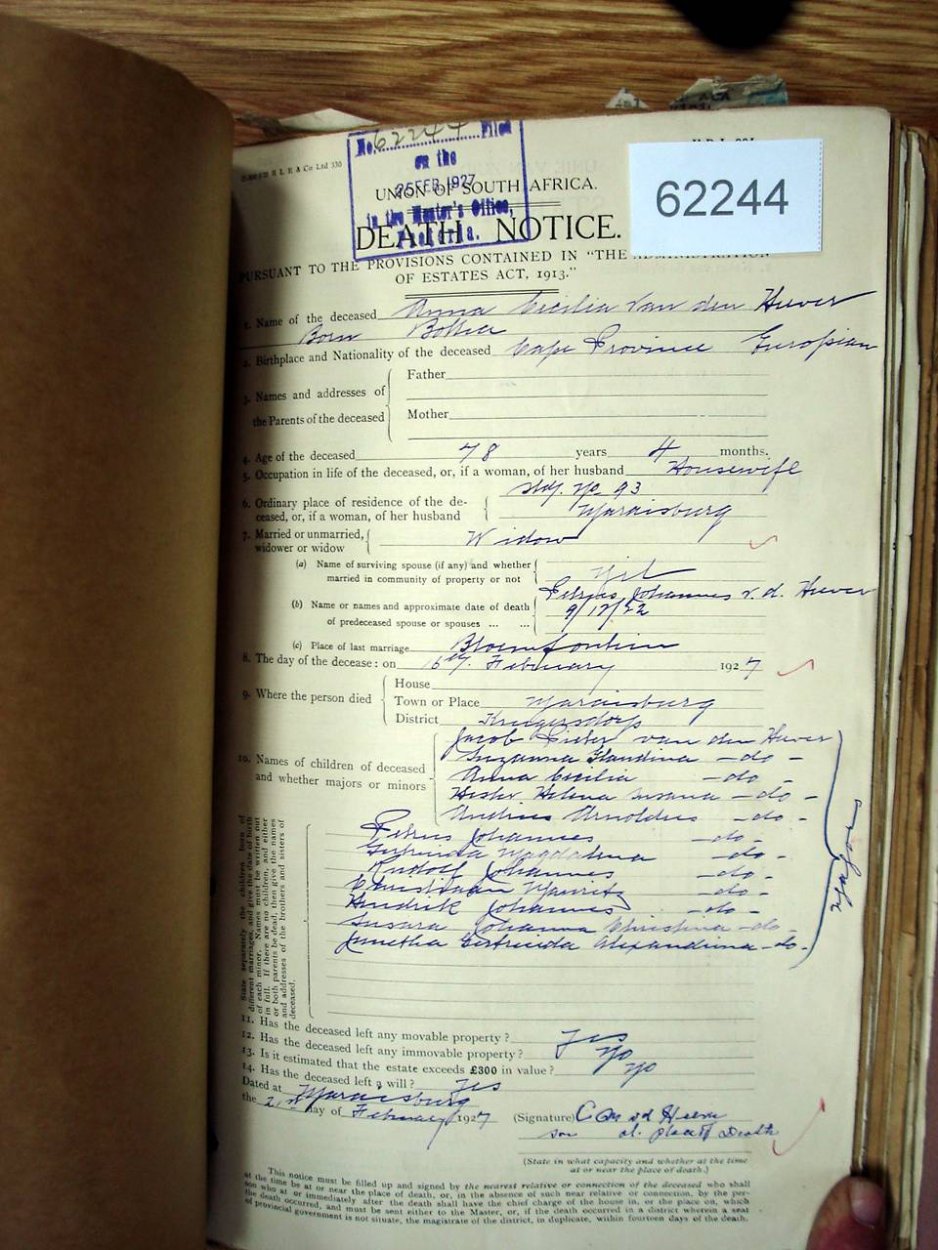 No. 62244 Filed
on the
25 FEB 1927
in the Master's Office,
Pretoria.
62244
UNION OF SOUTH AFRICA.
DEATH NOTICE.
PURSUANT TO THE PROVISIONS CONTAINED IN "THE ADMINISTRATION
OF ESTATES ACT, 1913."
1. Name of the deceased Anna Cecilia Van den Heever
Born Botha
2. Birthplace and Nationality of the deceased Cape Province European
3. Names and addresses of the Parents of the deceased
Father
Mother
4. Age of the deceased 78 years 4 months.
5. Occupation in life of the deceased, or, if a woman, of her husband Housewife
6. Ordinary place of residence of the deceased, or, if a woman, of her husband
Std. No 93
Maraisburg
7. Married or unmarried, widower or widow Widow
(a) Name of surviving spouse (if any) and whether married in community of property or not Nil
(b) Name or names and approximate date of death of predeceased spouse or spouses ... ...
Petrus Johannes v. d. Heever
9/12/22
(c) Place of last marriage Bloemfontein
8. The day of the decease: on 16th February 1927
9. Where the person died
House
Town or Place Maraisburg
District Krugersdorp
10. Names of children of deceased and whether majors or minors
Jacob Pieter van den Heever
Suzanna Glaudina - do -
Anna Cecilia - do -
Hester Helena Susana - do -
Andries Arnoldus - do -
Petrus Johannes - do -
Gertruida Magdalena - do -
Rudolf Johannes - do -
Christiaan Mauritz - do -
Hendrik Johannes - do -
Susara Johanna Christina - do -
Gertruida Alexandrina - do -
Majors
State separately the children born of different marriages, and give the date of birth of each minor. Names must be written out in full. If there are no children, and either or both parents be dead, then give the names and addresses of the brothers and sisters of deceased.
11. Has the deceased left any movable property? Yes
12. Has the deceased left any immovable property? No
13. Is it estimated that the estate exceeds £300 in value? No
14. Has the deceased left a will? Yes
Dated at Maraisburg
the 21st day of February 1927
(Signature) C M vd Heever
son at place of Death
(State in what capacity and whether at the time
at or near the place of death.)
This notice must be filled up and signed by the nearest relative or connection of the deceased who shall
at the time be at or near the place of death, or, in the absence of such near relative or connection, by the per-
son who at or immediately after the death shall have the chief charge of the house in, or the place on, which
the death occurred, and must be sent either to the Master, or, if the death occurred in a district wherein a seat
of provincial government is not situate, the magistrate of the district, in duplicate, within fourteen days of the death.